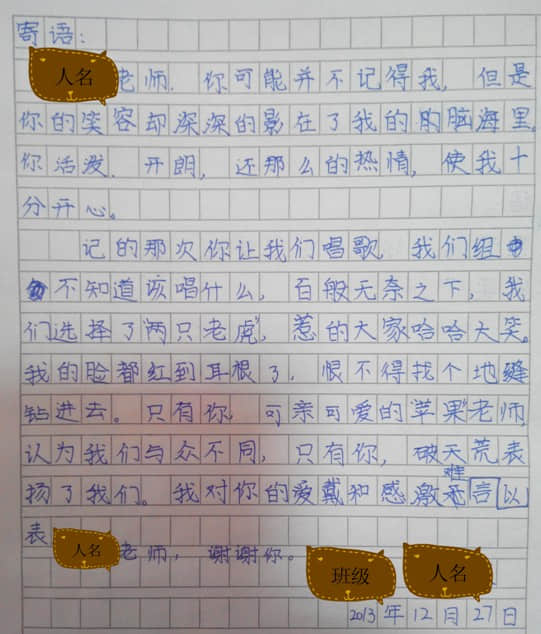 寄语：
人名老师. 你可能并不记得我, 但是
你的笑容却深深的影在了我的的脑海里.
你活泼. 开朗, 还那么的热情, 使我十
分开心。
记的那次你让我们唱歌, 我们组
不知道该唱什么, 百般无奈之下, 我
们选择了"两只老虎", 惹的大家哈哈大笑。
我的脸都红到耳根了, 恨不得找个地缝
钻进去。只有你, 可亲可爱的"苹果"老师,
认为我们与众不同, 只有你, 破天荒表
扬了我们。我对你的爱戴和感激难言以
表
人名老师, 谢谢你。
班级 人名
2013年12月27日